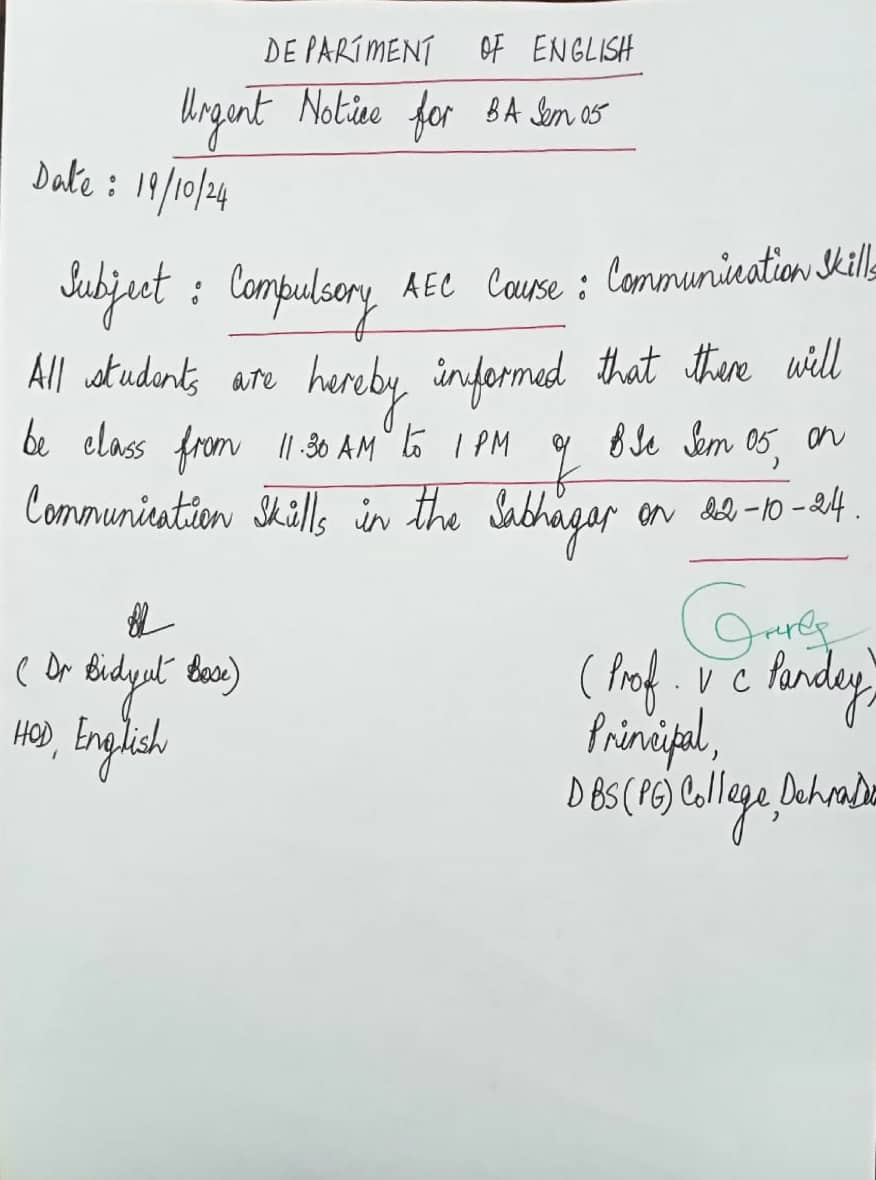 DEPARTMENT OF ENGLISH
Urgent Notice for BA Sem 05
Date : 19/10/24
Subject : Compulsory AEC Course : Communication Skills
All students are hereby informed that there will
be class from 11.30 AM to 1 PM of BSc Sem 05, on
Communication Skills in the Sabhagar on 22-10-24.
(Dr Bidyut Bose)
HOD, English
(Prof. V C Pandey)
Principal,
DBS(PG) College, Dehra